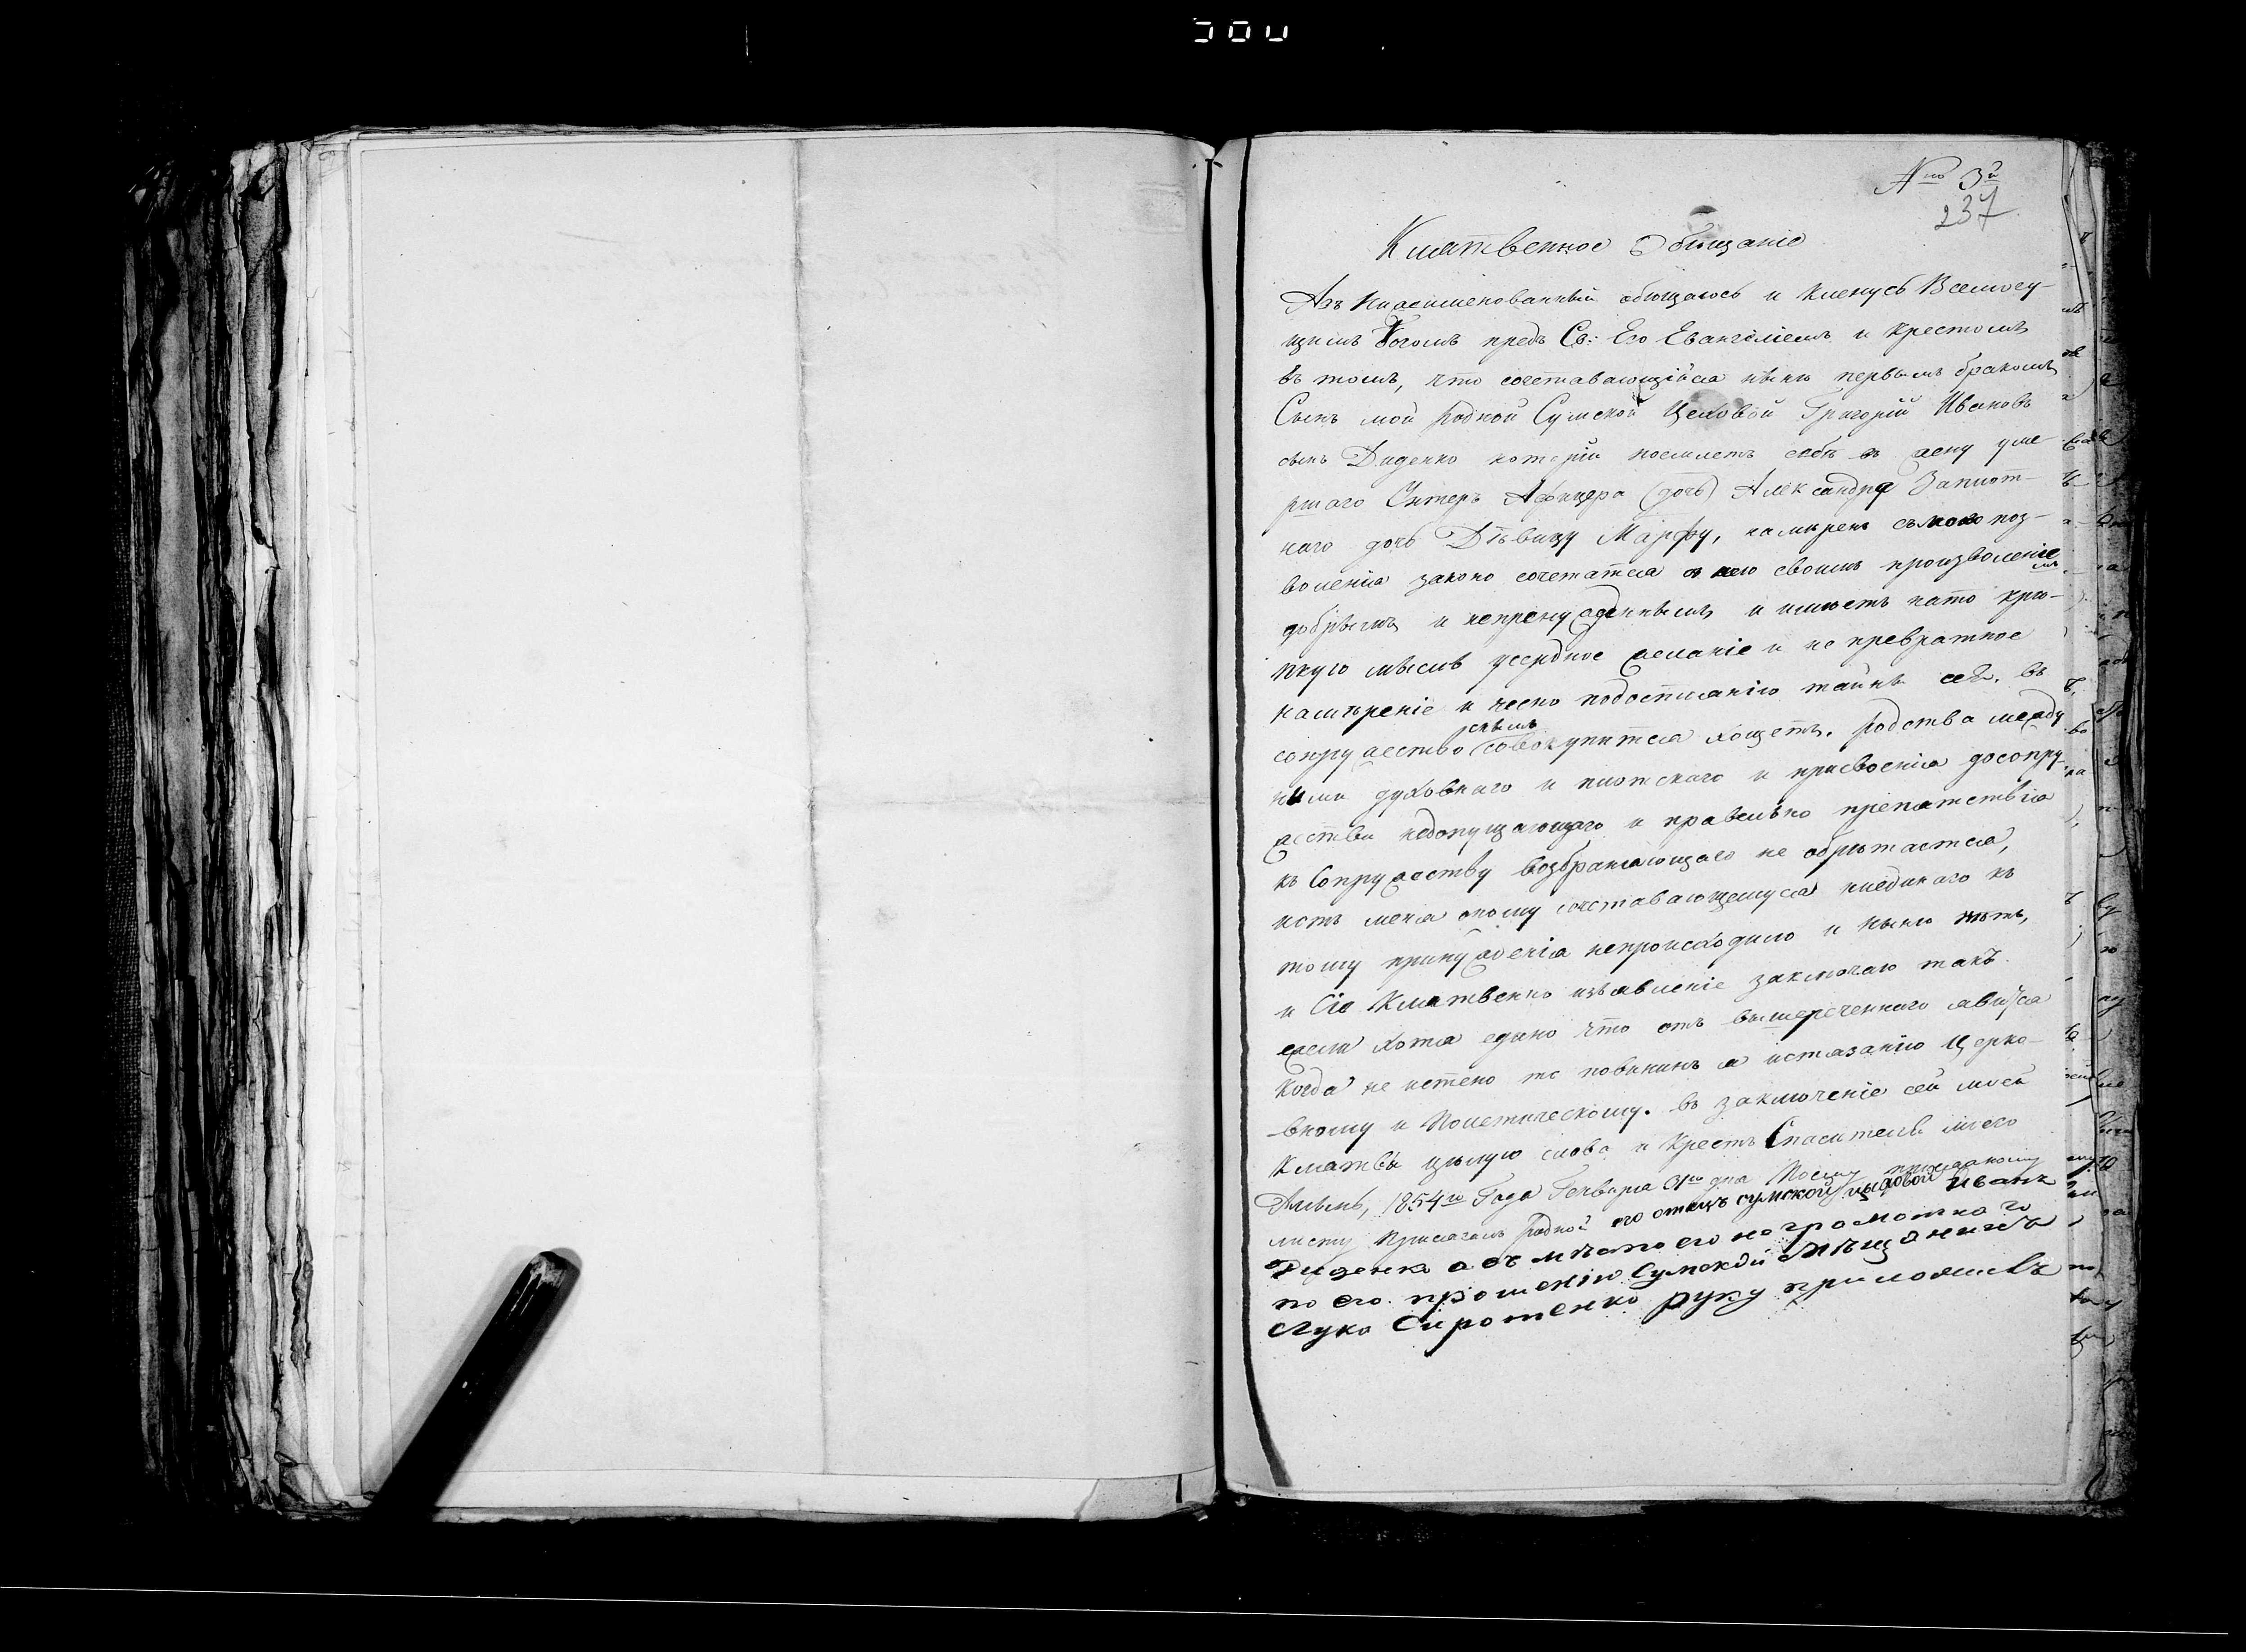 № 3й
237
Клятвенное Обѣщаніе
Азъ нижеименованный обѣщаюсь и кленусь Всемогу-
щимъ Богомъ предъ Св: Его Евангеліемъ и крестомъ
въ томъ, что сочетавающійся нынѣ первымъ бракомъ
Сынъ мой родной Сумской Цеховой Григорій Ивановъ
сынъ Диденко которій поемлетъ себѣ въ жену уме
ршаго Унтеръ Афицера (дочь) Александра Заплот-
наго дочь Дѣвицу Марфу, намѣренъ съ моего поз-
воленія законо сочетатся з нею своимъ произволеніе
мъ
добрымъ и непренужденнымъ и имѣетъ нато крѣ-
пкую мысль усердное желаніе и не превратное
намѣреніе и чесно подостоянію тайны сей. въ
супружество съ нымъ совокупится хощетъ. родства между
ними духовнаго и плотскаго и присвоенія досопру
жества недопущающаго и правелѣно препятствія
къ Сопружеству возбраняющаго не обрѣтается,
исть меня оному сочетавающемуся ниединаго къ
тому принужденія непроисходило и нынѣ нѣтъ,
и Сіе Клятвенно изъявленіе заключаю такъ.
ежели хотя едыно что отъ вышереченнаго явится
когда не истено то повиненъ я истязанію Церко-
вному и Политическому. въ заключеніе сей моей
Клятвы цѣлую слова и Крестъ Спасителя моего
Аминь, 1854го Года Генваря 31го дня К сему присяжному
листу присягалъ родной его отецъ сумской цыховой Иванъ
Диденко а въ мѣсто его неграмотнаго
по его прошенію Сумской Мѣщанинъ
Лука Сиротенко руку приложилъ